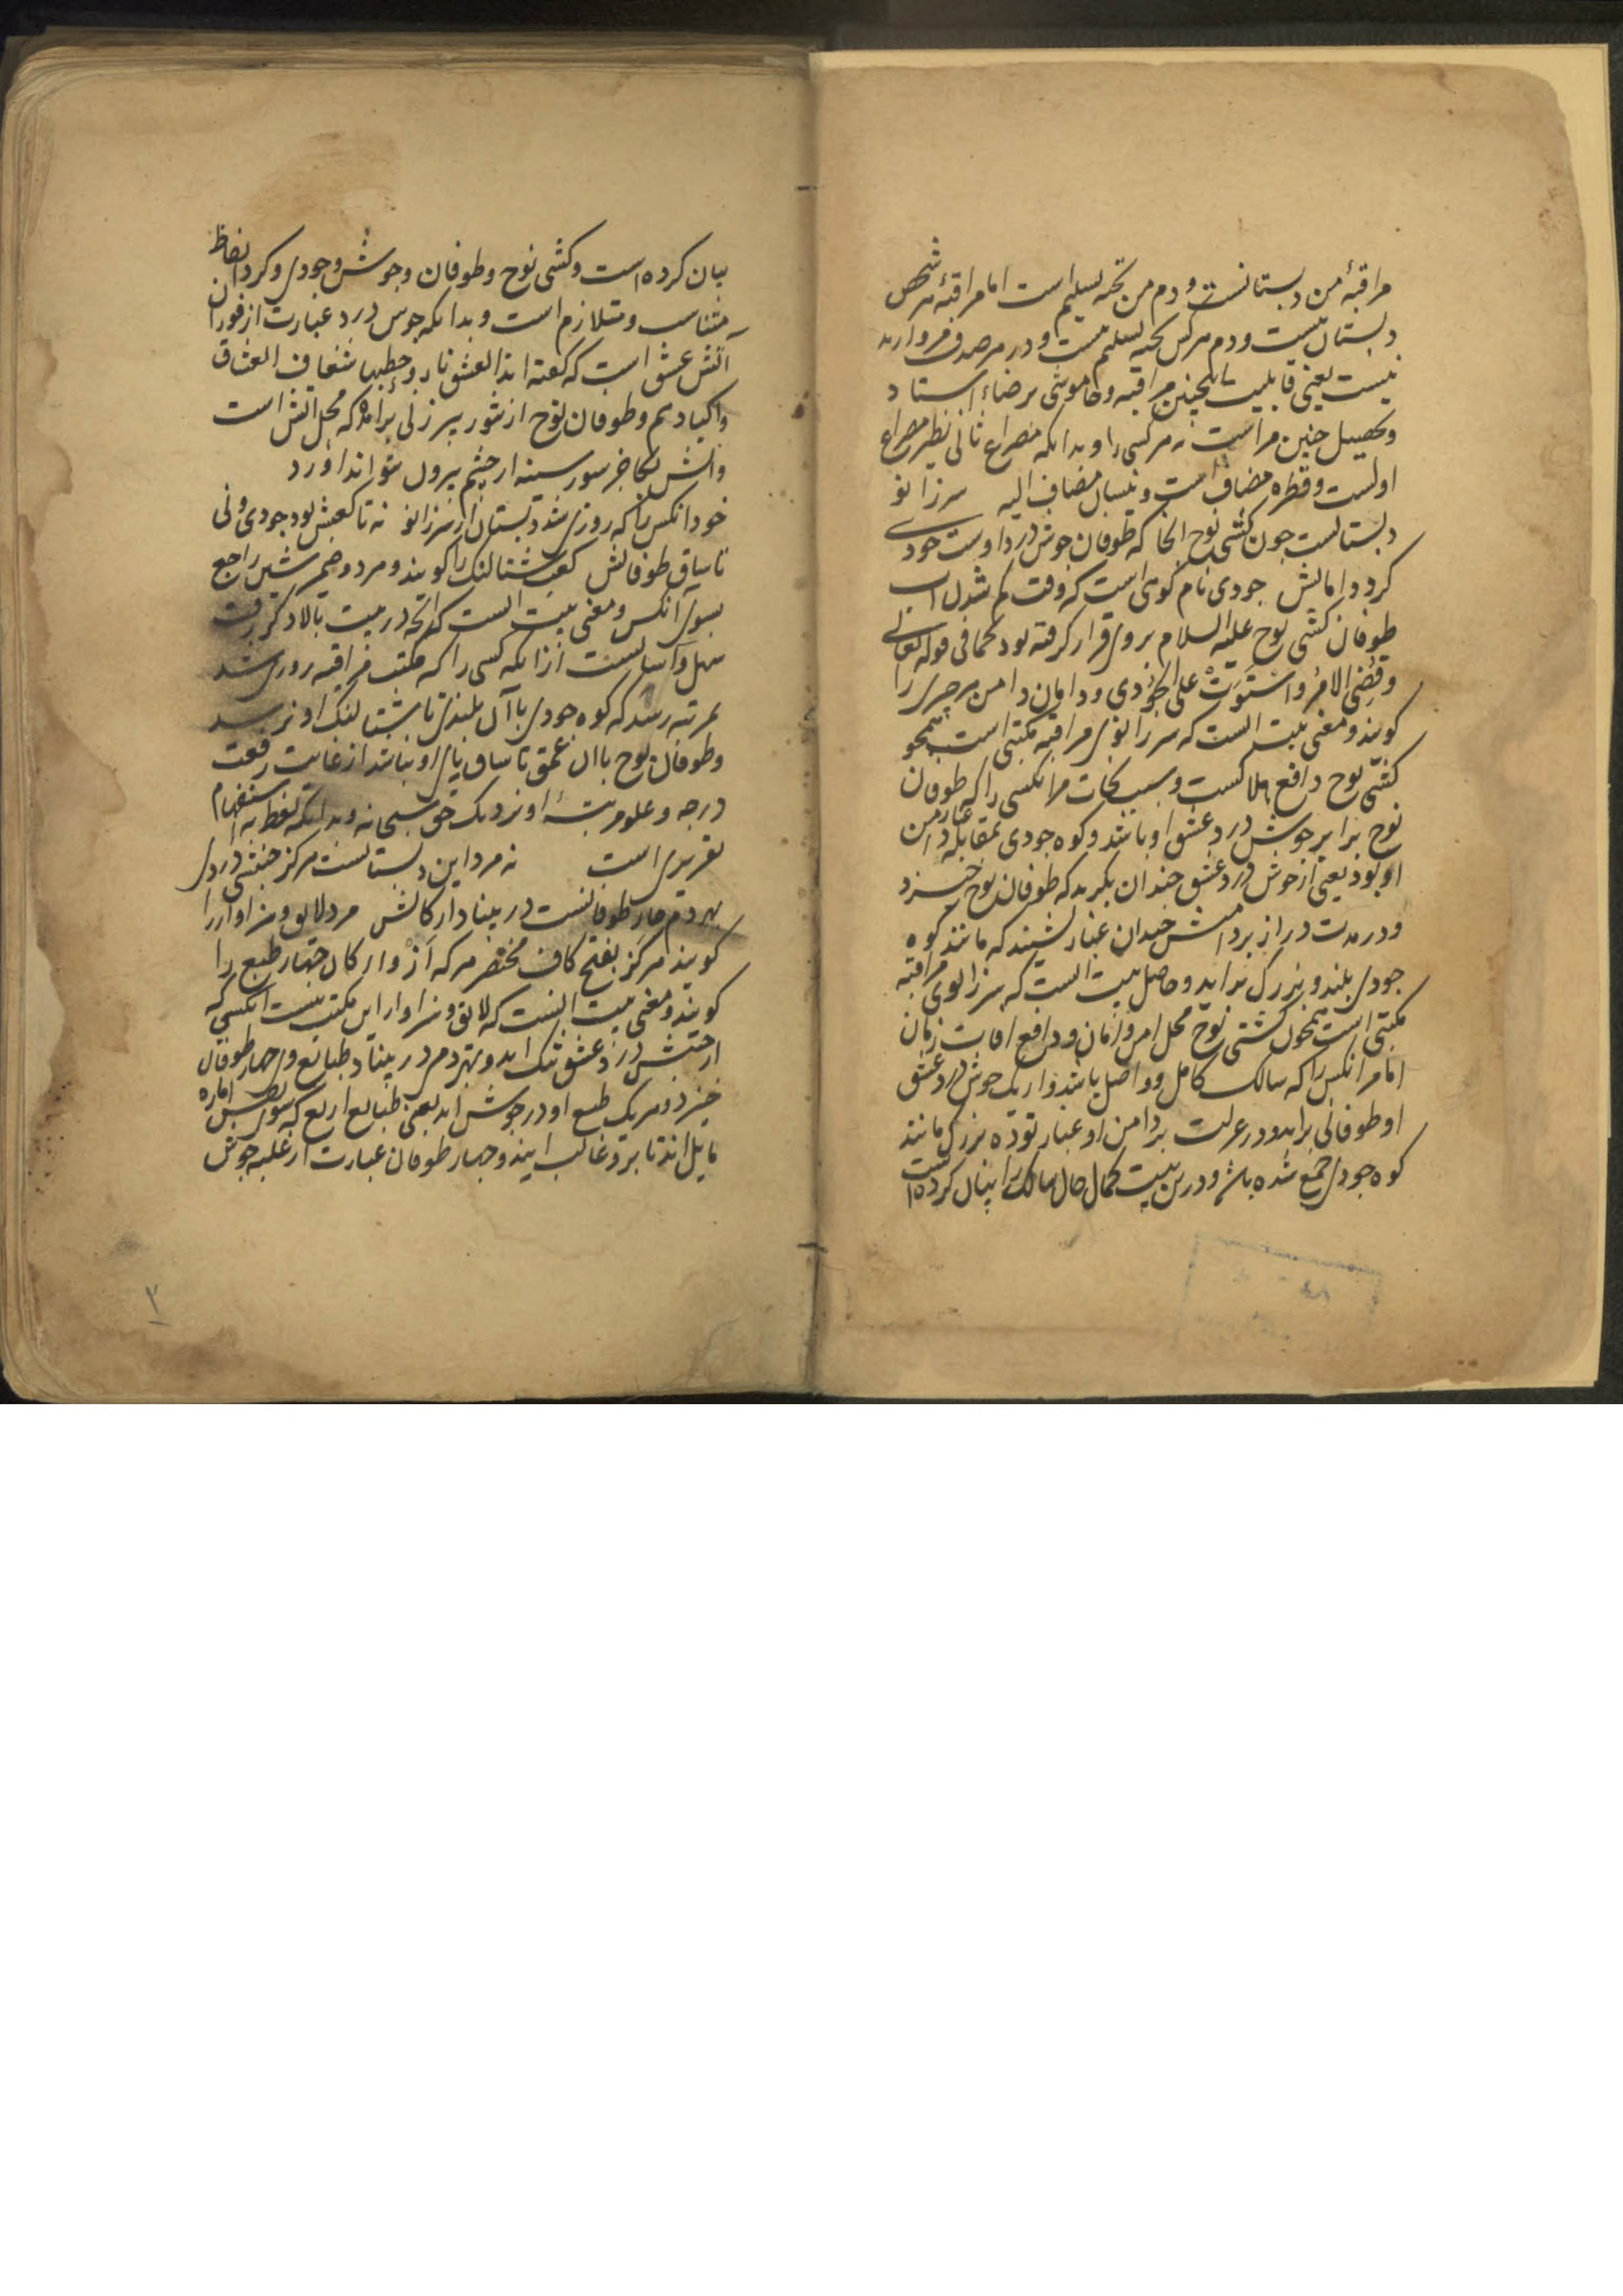 مراقبهٔ من دبستانست و دم من تخته تسلیم است اما مراقبهٔ هر شخص
دبستان نیست و دم هر کس تخته تسلیم نیست و در هر صدف مروارید
نیست یعنی قابلیت اینچنین مراقبه و خاموشی بر رضاء استاد
و تحصیل چنین مراست نه هر کسی را و بدانکه مصراع ثانی نظیر مصراع
اولست و قطره مضاف است و نیسان مضاف الیه سر زانو
دبستانیست چون کشتی نوح انجا که طوفان جوش درد اوست جودی
کرد دامانش جودی نام کوهی است که وقت کم شدن آب
طوفان کشتی نوح علیه السلام بروی قرار گرفته بود کما فی قوله تعالی
وقُضِیَ الامرُ واستَوَتْ علی الجُودی و دامان دامن هر چیزی را
کویند و معنی بیت انست که سر زانوی مراقبه مکتبی است همچو
کشتی نوح دافع هلاکست و سبب نجات مر انکسی را که طوفان
نوح برابر جوش درد عشق او باشد و کوه جودی بمقابله غبار دامن
او بود یعنی از جوش درد عشق چندان بگرید که طوفان نوح خیزد
و در مدت دراز بر دامنش چندان غبار نشیند که مانند کوه
جودی بلند و بزرگ نماید و حاصل بیت انست که سر زانوی مراقبه
مکتبی است همچون کشتی نوح محل امن و امان و دافع افات زمان
اما مر انکس را که سالک کامل و واصل باشد و از یک جوش درد عشق
او طوفانی براید و در عزلت بر دامن او غبار توده بزرگ مانند
کوه جودی جمع شده باشد و درین بیت کمال حال سالک را بیان کرده است
بیان کرده است و کشتی نوح و طوفان و جوش و جودی و کرد الفاظ
متناسب و متلازم است و بدانکه جوش درد عبارت از فوران
آتش عشق است که گفته اند العشق نار و حطبها شغاف العشاق
واکبادهم و طوفان نوح از تنور پیر زنی برامده که محل اتش است
و اتش بجز سوز سینه از چشم بیرون نتواند آورد
خود انکس را که روزی شد دبستان از سر زانو نه تا کعبش بود جودی و نی
تا ساق طوفانش کعب شتالنگ را کویند و هر دو ضمیر شین راجع
بسوی انکس و معنی بیت انست که انچه در بیت بالا ذکر یافت
سهل و اسانست از انکه کسی را که مکتب مراقبه روزی شد
بمرتبه رسد که کوه جودی با آن بلندی تا شتالنگ او نرسد
و طوفان نوح با ان عمق تا ساق پای او نباشد از غایت رفعت
درجه و علو مرتبهٔ او نزدیک حق سبحانه و بدانکه لفظ نه استفهام
تقریری است نه مرد این دبستانست هر کز جنبش دردی
بهر دم چار طوفانیست در بنیاد ارکانش مرد لایق و سزاوار را
کویند هر کَز بفتح کاف مخفف هر که از و ارکان چهار طبع را
کویند و معنی بیت اینست که لایق و سزاوار این مکتب نیست انکسی که
از جنبش درد عشق تنگ اید و بهر دم در بنیاد طبایع وی چهار طوفان
خیزد و هر یک طبع او در جوش اید یعنی طبایع اربع که بسوی نفس اماره
مایل اند تا برو غالب ایند و چهار طوفان عبارت از غلبه جوش
٢